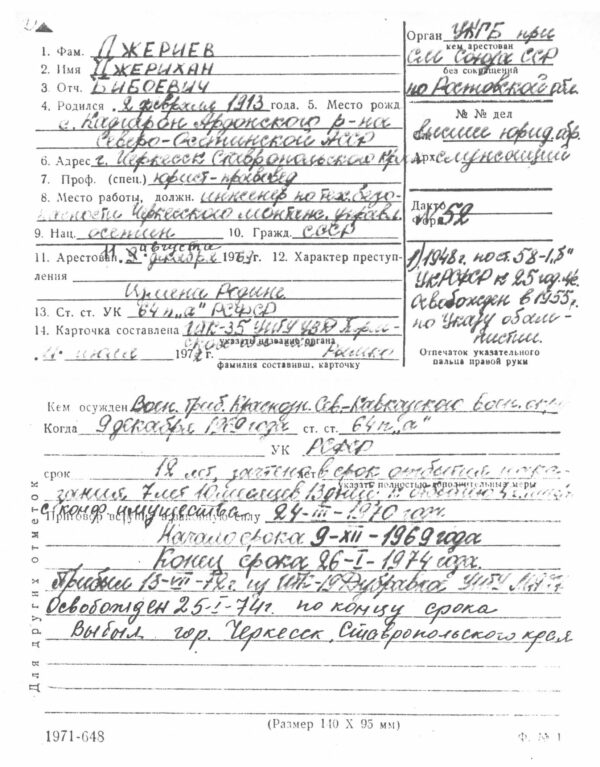 1. Фам. Джериев
2. Имя Джерихан
3. Отч. Бибоевич
4. Родился 2 февраля 1913 года. 5. Место рожд
с. Кадгарон Ардонского р-на
Северо-Осетинской АССР
6. Адрес г. Черкесск Ставропольского края
7. Проф. (спец.) юрист-правовед
8. Место работы, должн. инженер по тех. безо-
пасности Черкесского монтаж. управл.
9. Нац. осетин 10. Гражд. СССР
11 августа
11. Арестован декабря 1969 г. 12. Характер преступ-
ления
Измена Родине
13. Ст. ст. УК 64 п „а" РСФСР
14. Карточка составлена ИТК-35 УИТУ УВД Перм-
ской
указать название органа
июля 1972 г.
фамилия составивш. карточку
Орган УКГБ при
кем арестован
СМ Союза ССР
без сокращений
по Ростовской обл.
№ № дел
высшее юрид. обр.
Арх. служащий
Дакто
Форм. № 52
1) 1948 г. по ст. 58-1„б"
УК РСФСР к 25 год.
Освобожден в 1955 г.
по Указу об ам-
нистии.
Отпечаток указательного
пальца правой руки
Кем осужден Воен. Триб. Краснозн. Сев-Кавказского Воен. окр.
Когда 9 декабря 1969 года ст. ст. 64 п „а"
УК РСФСР
срок 12 лет, зачтено в срок отбытия нака-
указать полностью дополнительные меры
зания 7 лет 10 месяцев 13 дней. К отбытию
с конф. имущества
Приговор вступил в законную силу 24-III-1970 год.
Начало срока 9-XII-1969 года
Конец срока 26-I-1974 года.
Прибыл 13-VII-72 г. из ИТК-19 Дубравка УИТУ
Освобожден 25-I-74 г. по концу срока
Выбыл гор. Черкесск, Ставропольского края
Для других отметок
(Размер 140 X 95 мм)
1971-648 Ф. № 1